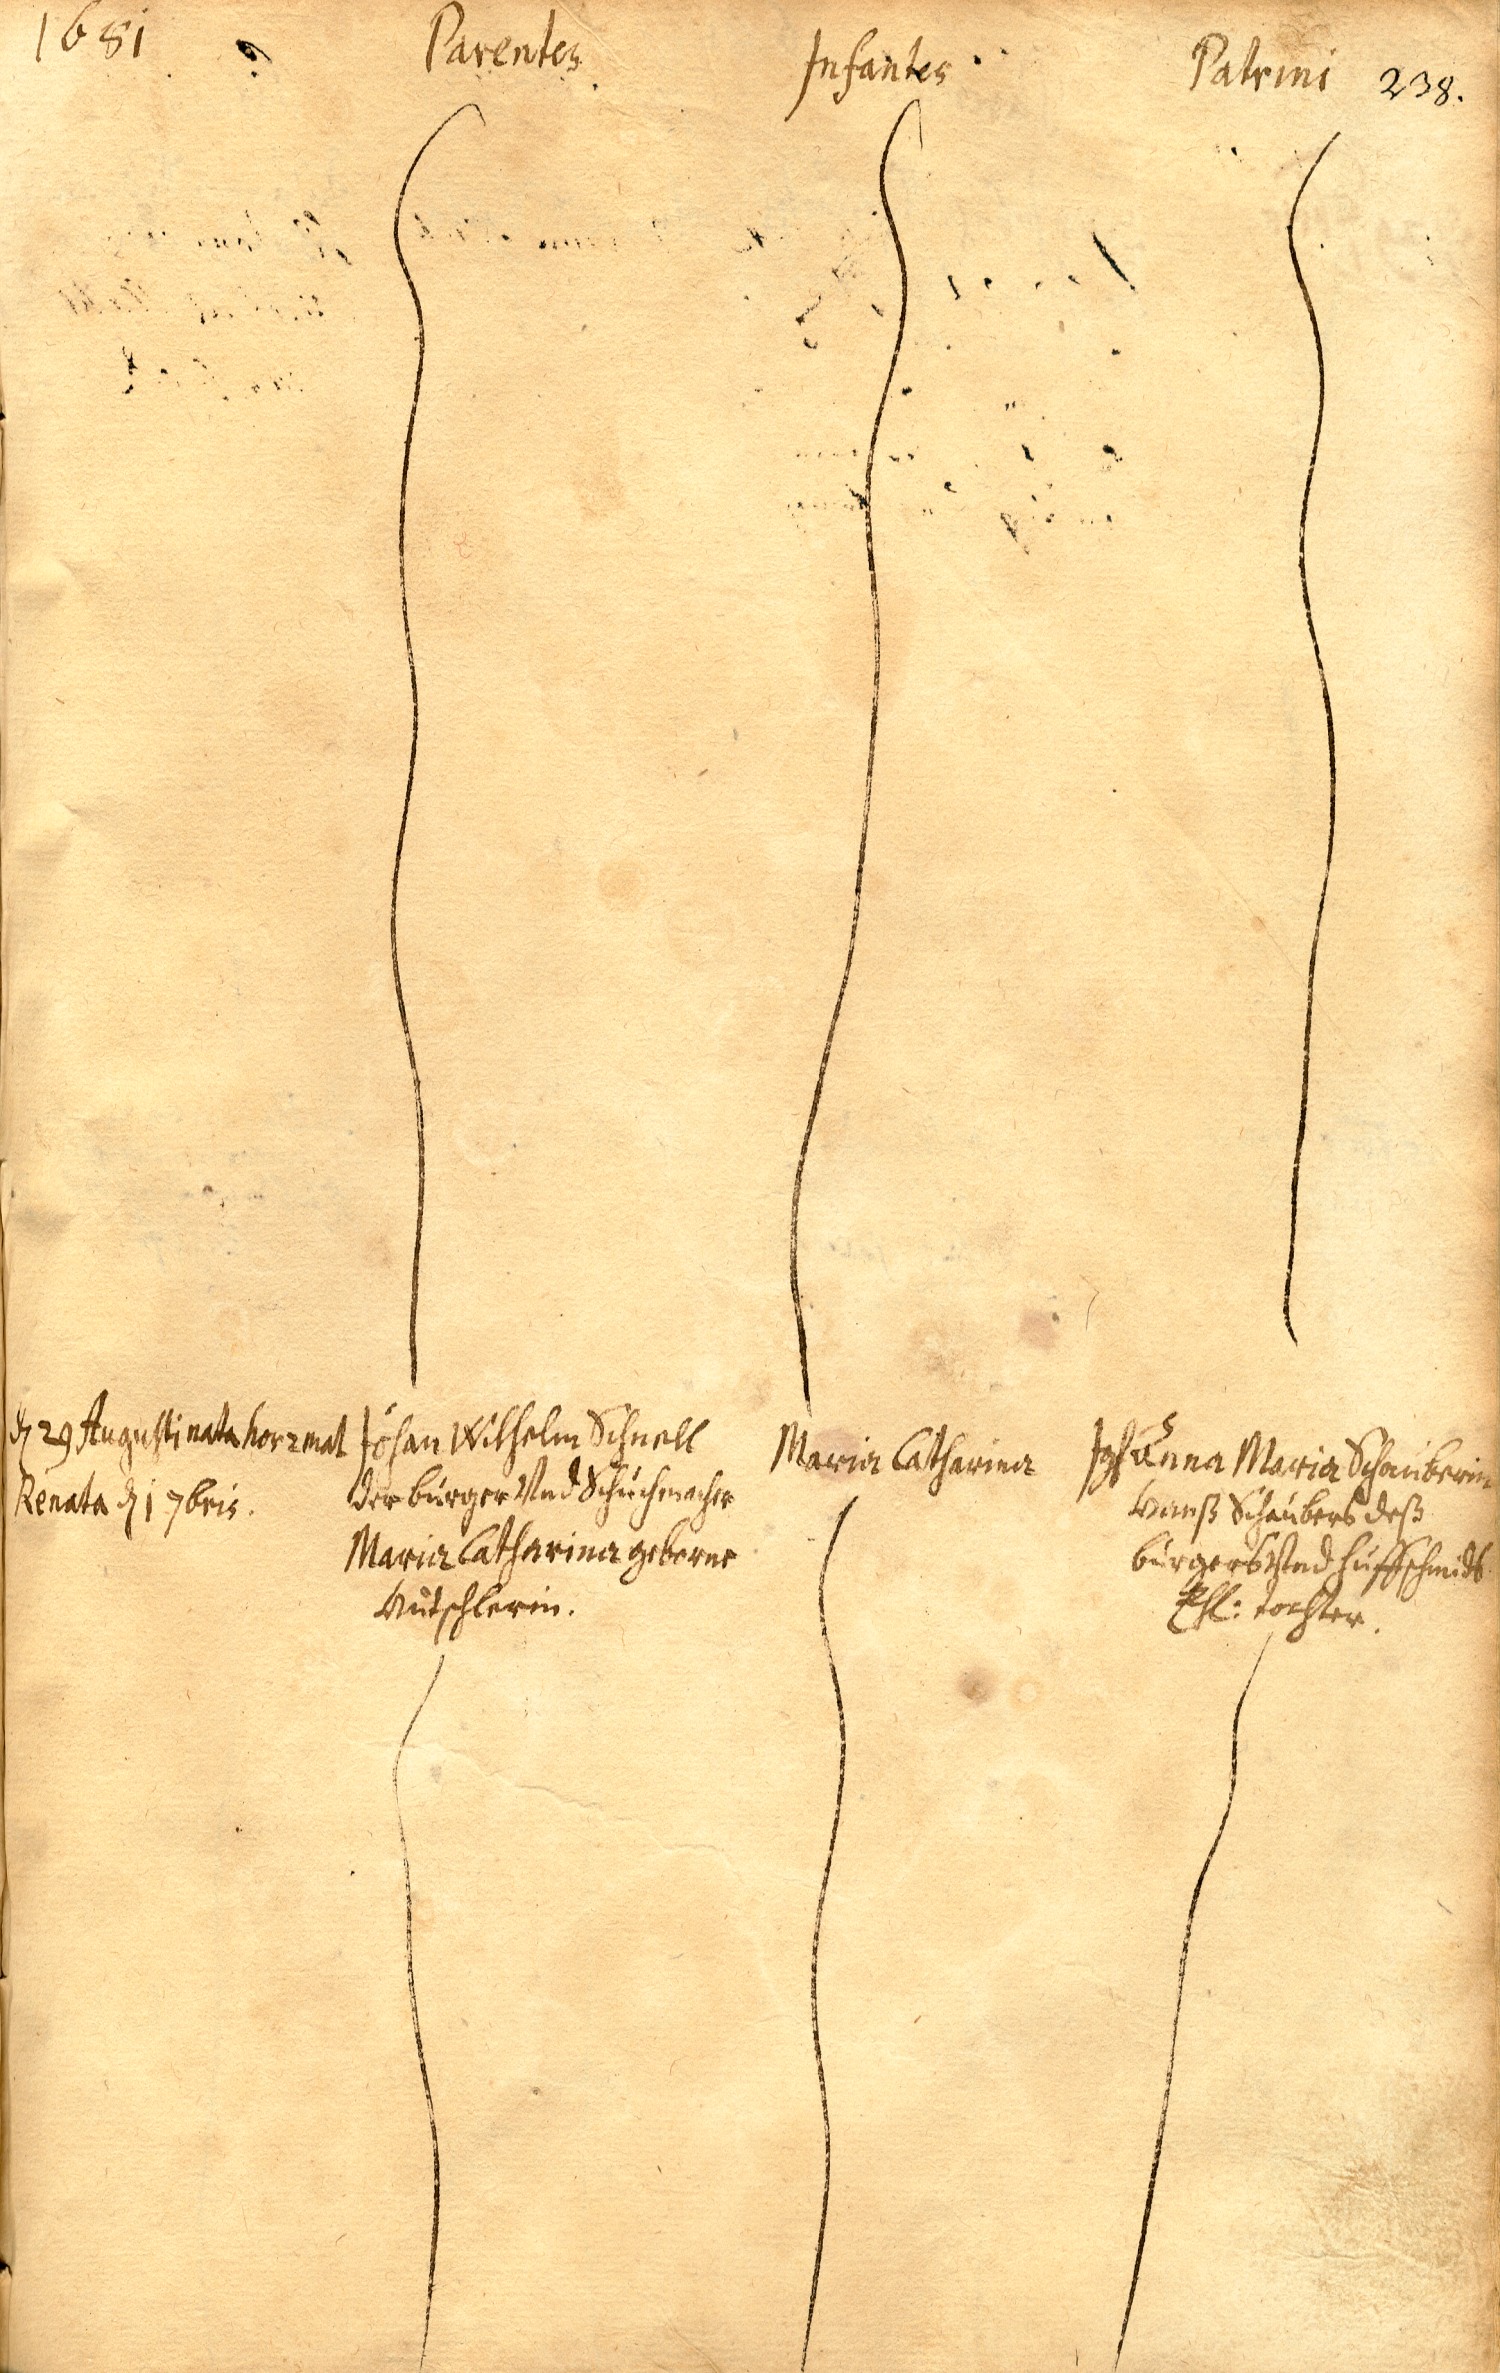 1681
Parentes
Infantes
Patrini 238.
29 Augusti nata hor 2 mat
Renata 1 7bris.
Johan Wilhelm Schnell
der bürger Und Schüchmacher
Maria Catharina geborne
Maria Catharina
Anna Maria Schauberin
Hanß Schaübers deß
bürgers Und Huffschmids
Ehl: tochter.